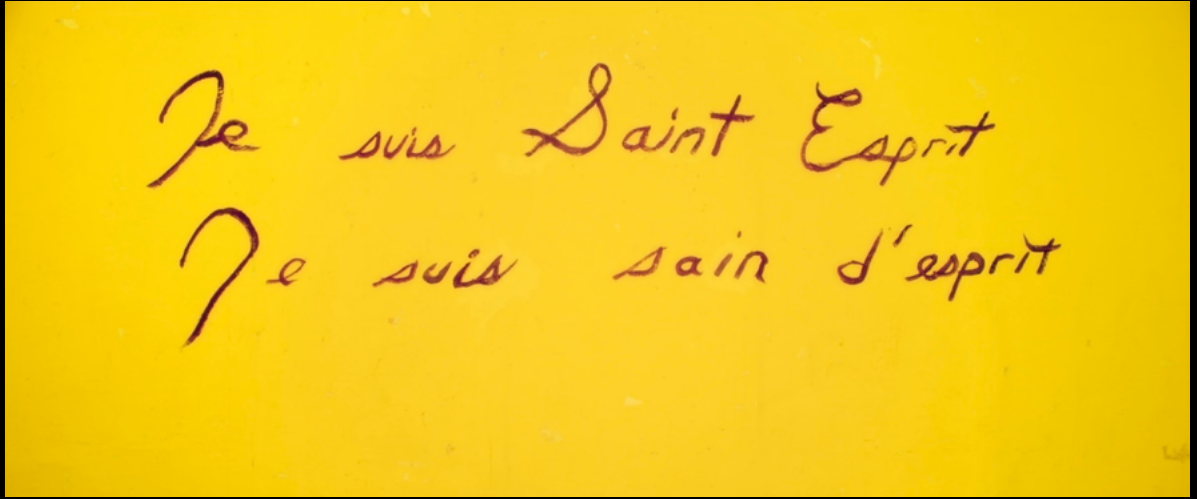 Je suis Saint Esprit
Je suis sain d'esprit